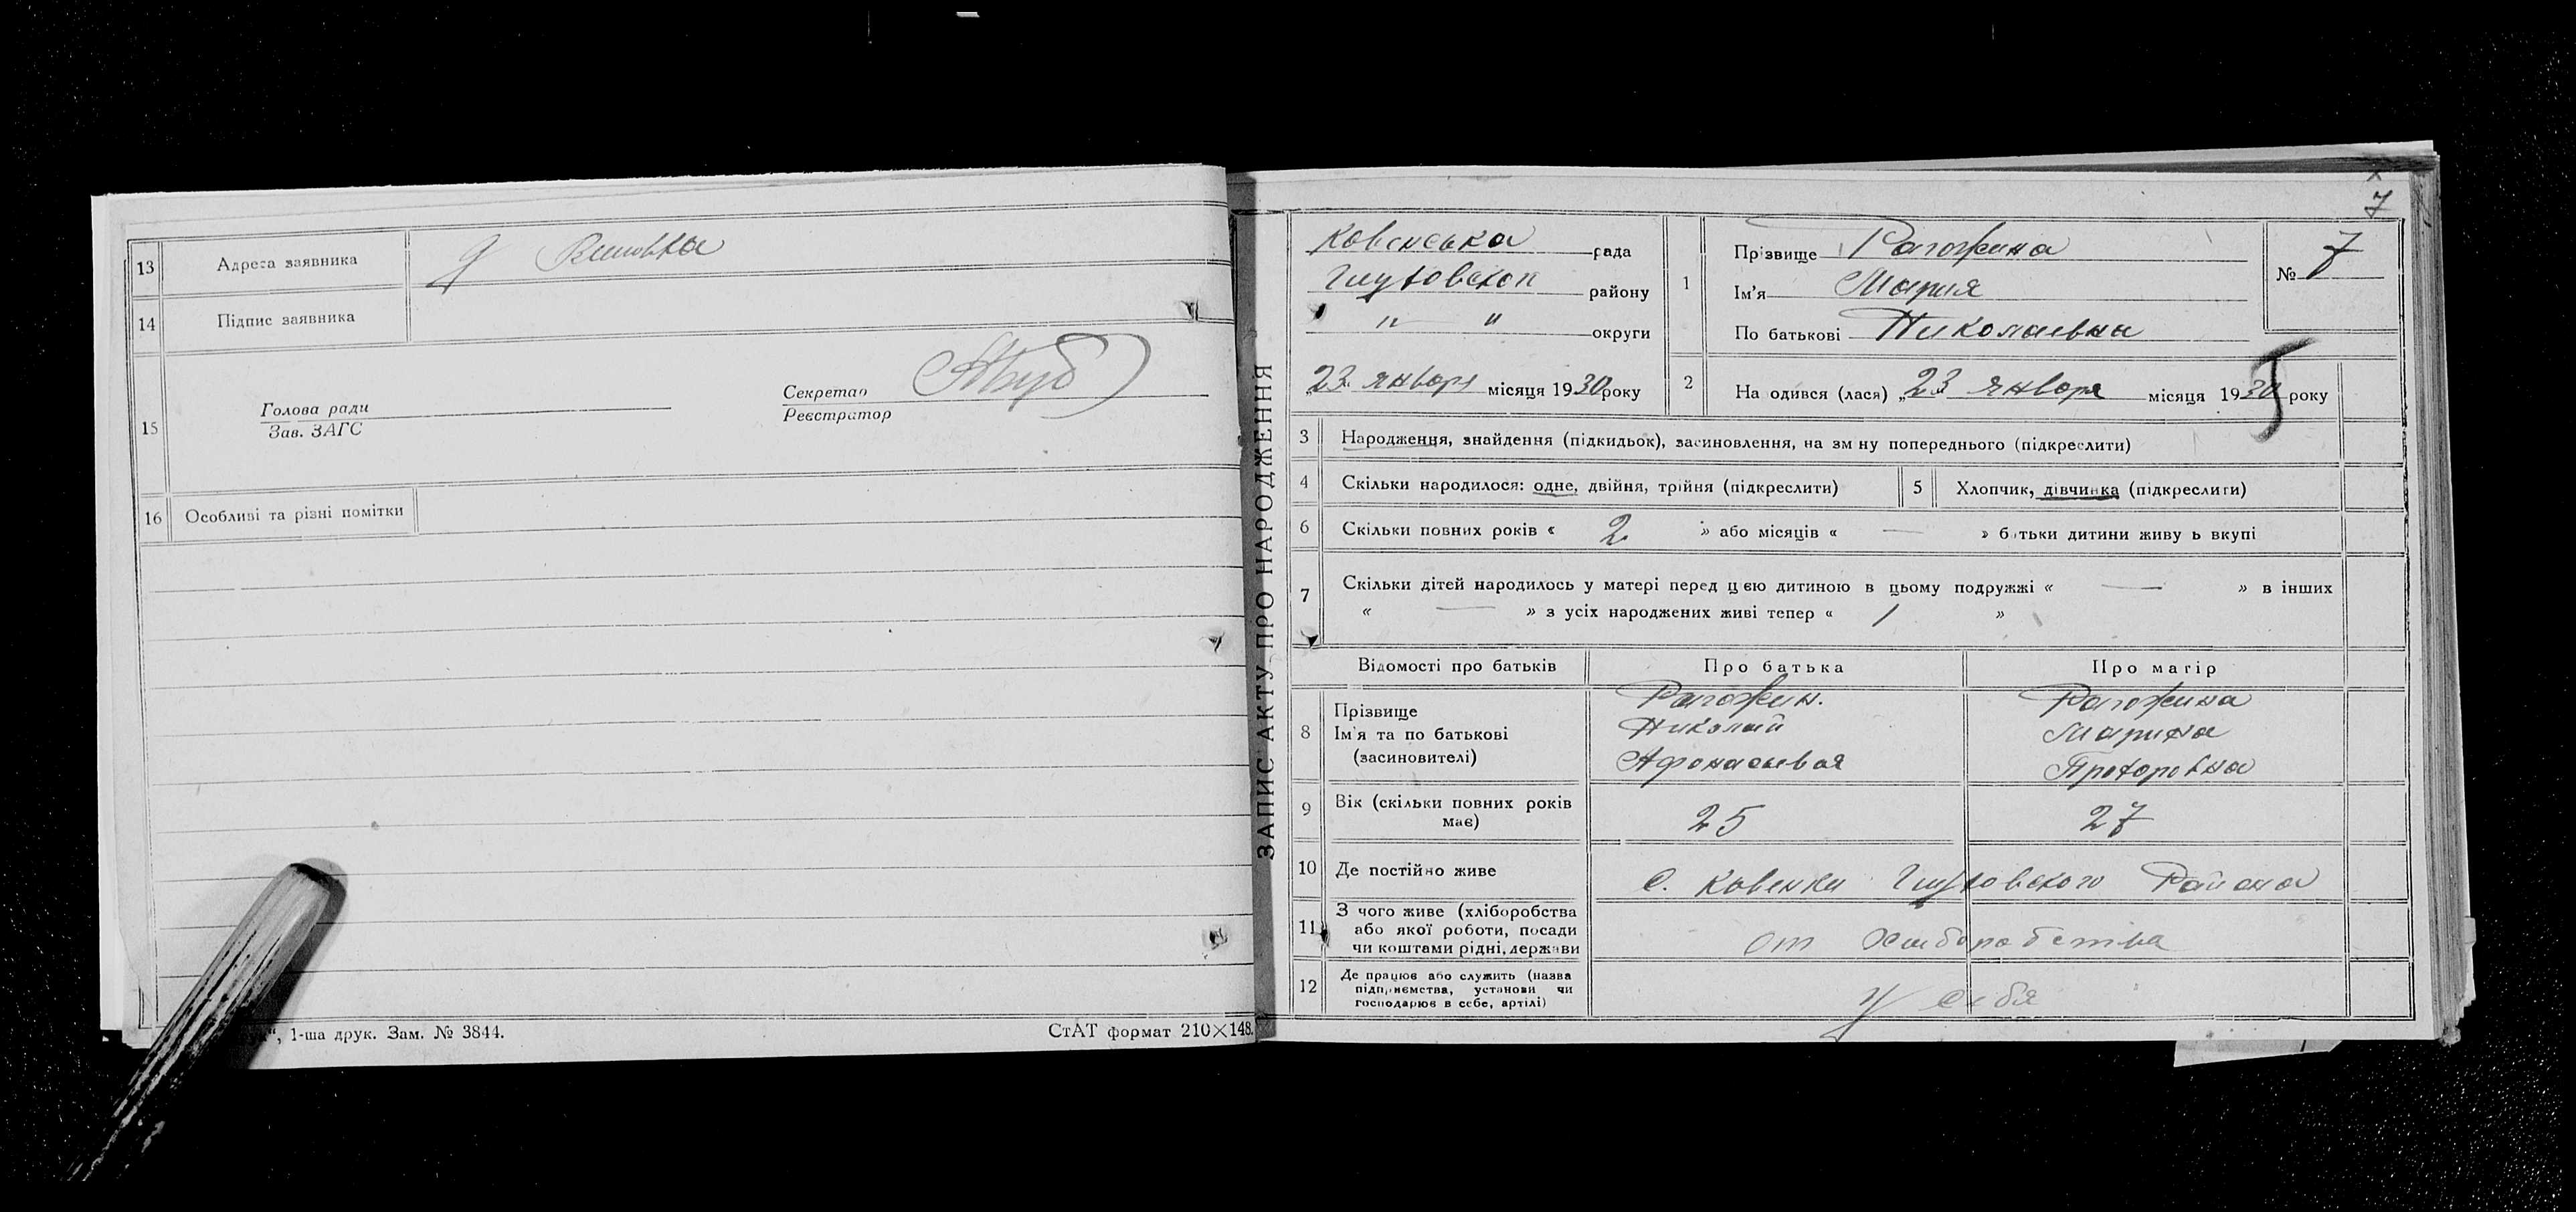 13 Адреса заявника
14 Підпис заявника
15 Голова ради
Зав. ЗАГС
Секретар
Реєстратор
16 Особливі та різні помітки
", 1-ша друк. Зам. № 3844.
СтАТ формат 210×148.
ЗАПИС АКТУ ПРО НАРОДЖЕННЯ
7
Ковенська рада
Глуховской району
" — " округи
„23 января місяця 1930 року
1 Прізвище Рагожина
Ім'я Мария
По батькові Николаевна
№ 7
2 На одився (лася) „23 января місяця 1930 року
3 Народження, знайдення (підкидьок), засиновлення, на зм ну попереднього (підкреслити)
4 Скільки народилося: одне, двійня, трійня (підкреслити)
5 Хлопчик, дівчинка (підкреслити)
6 Скільки повних років « 2 » або місяців « — » батьки дитини живу ь вкупі
7 Скільки дітей народилось у матері перед цією дитиною в цьому подружжі « — » в інших
« — » з усіх народжених живі тепер « 1 »
Відомості про батьків Про батька Про матір
8 Прізвище
Ім'я та по батькові
(засиновителі)
Рагожин.
Николай
Афонасывая
Рагожина
Марина
Прохоровна
9 Вік (скільки повних років
має)
25
27
10 Де постійно живе
с. Ковенки Глуховского Района
11 З чого живе (хліборобства
або якої роботи, посади
чи коштами рідні, держави
от Хлиборобства
12 Де працює або служить (назва
підприємства, установи чи
господарює в себе, артілі)
у себя